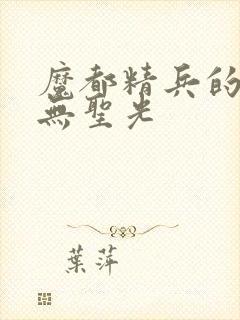 魔都精兵的
無聖光
葉萍